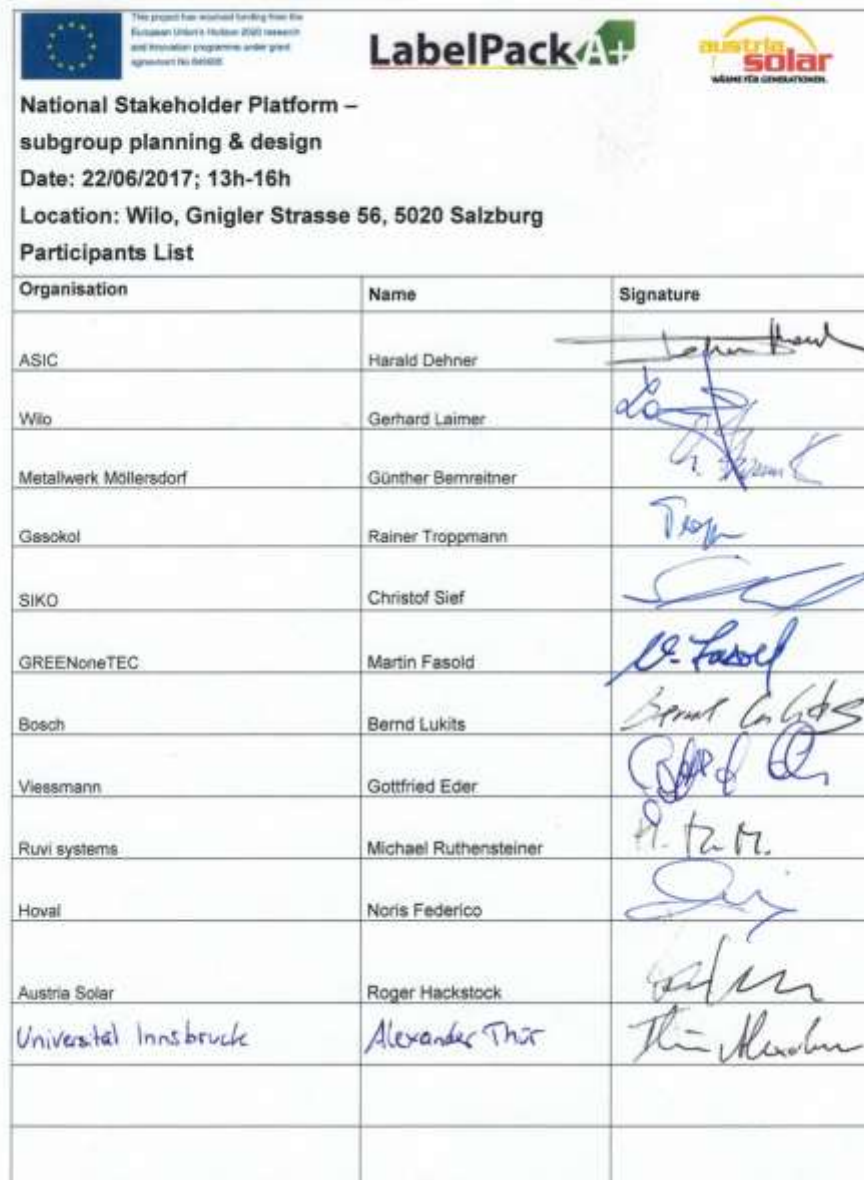 This project has received funding from the
European Union's Horizon 2020 research
and innovation programme under grant
agreement No
LabelPack A+
austria
solar
WÄRME FÜR GENERATIONEN.
National Stakeholder Platform –
subgroup planning & design
Date: 22/06/2017; 13h-16h
Location: Wilo, Gnigler Strasse 56, 5020 Salzburg
Participants List
Organisation Name Signature
ASIC Harald Dehner
Wilo Gerhard Laimer
Metallwerk Möllersdorf Günther Bernreitner
Gasokol Rainer Troppmann
SIKO Christof Sief
GREENoneTEC Martin Fasold
Bosch Bernd Lukits
Viessmann Gottfried Eder
Ruvi systems Michael Ruthensteiner
Hoval Noris Federico
Austria Solar Roger Hackstock
Universität Innsbruck Alexander Thür